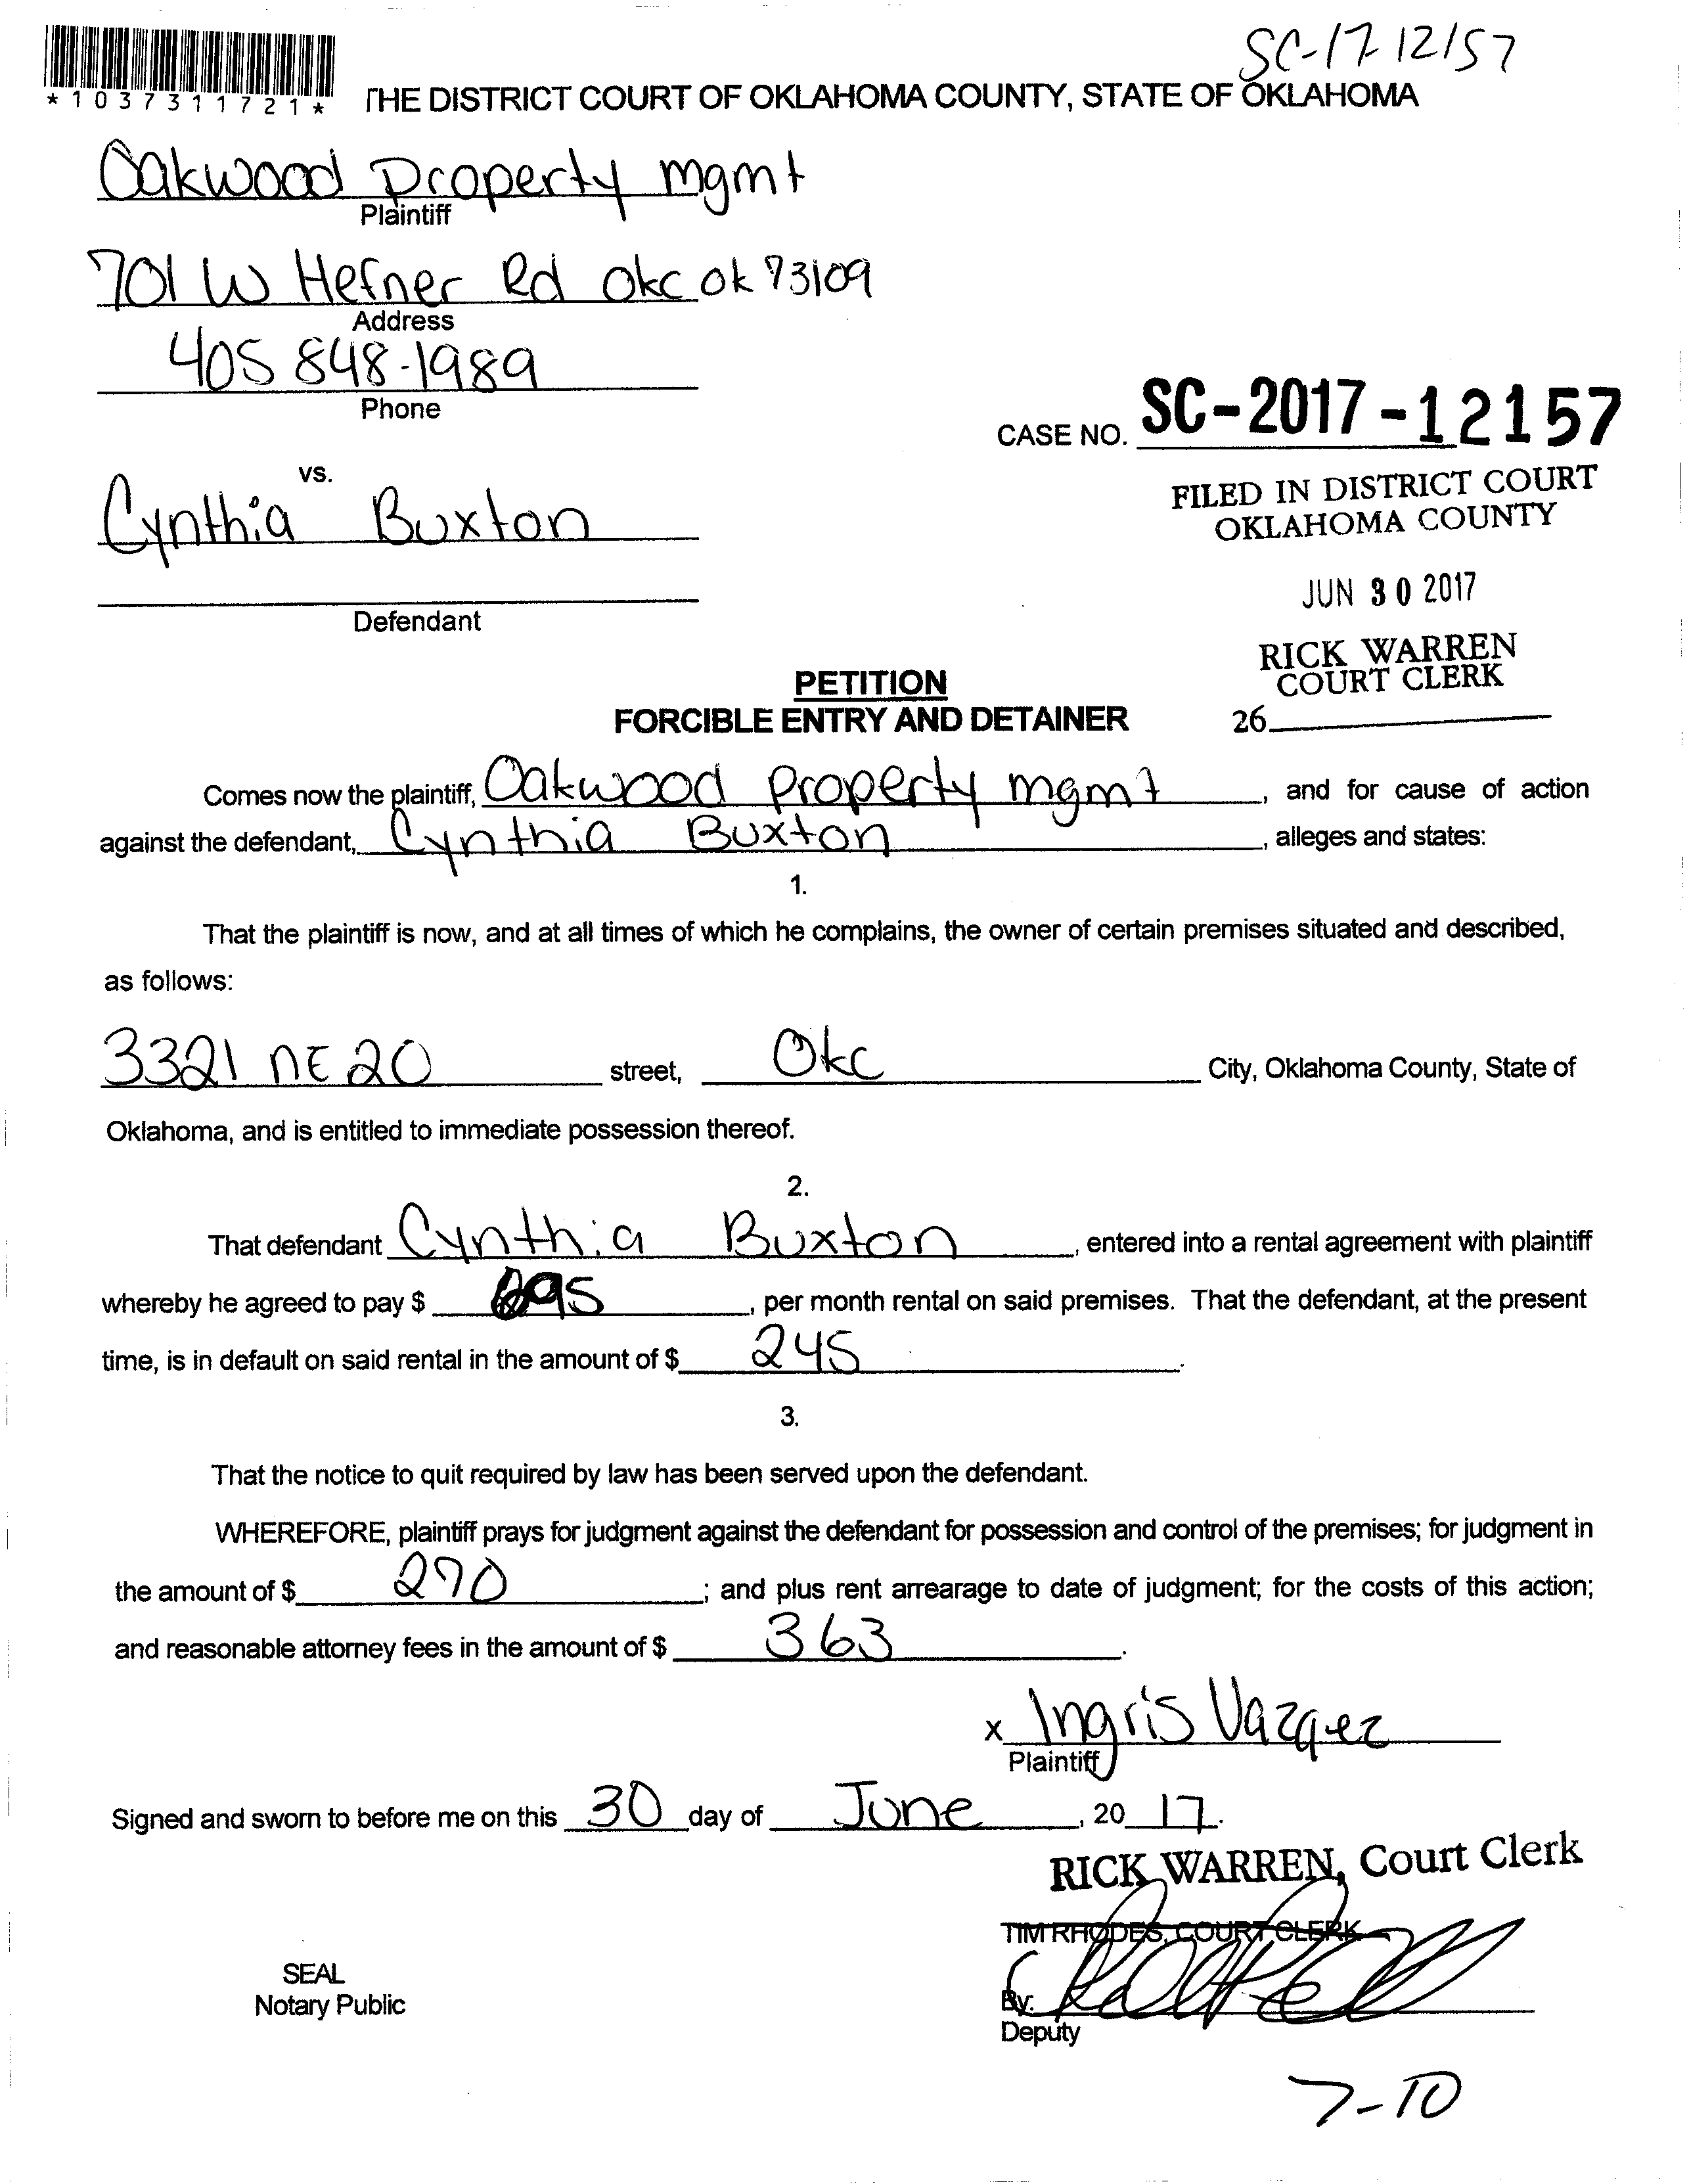 SC-17-12157
*1037311721*
THE DISTRICT COURT OF OKLAHOMA COUNTY, STATE OF OKLAHOMA
Oakwood Property mgmt
Plaintiff
701 W Hefner Rd Okc ok 73109
Address
405 848-1989
Phone
CASE NO. SC-2017-12157
vs.
FILED IN DISTRICT COURT
OKLAHOMA COUNTY
Cynthia Buxton
JUN 30 2017
Defendant
RICK WARREN
COURT CLERK
PETITION
FORCIBLE ENTRY AND DETAINER
26
Comes now the plaintiff, Oakwood property mgmt, and for cause of action
against the defendant, Cynthia Buxton, alleges and states:
1.
That the plaintiff is now, and at all times of which he complains, the owner of certain premises situated and described,
as follows:
3321 NE 20 street, Okc City, Oklahoma County, State of
Oklahoma, and is entitled to immediate possession thereof.
2.
That defendant Cynthia Buxton, entered into a rental agreement with plaintiff
whereby he agreed to pay $, per month rental on said premises. That the defendant, at the present
time, is in default on said rental in the amount of $ 245.
3.
That the notice to quit required by law has been served upon the defendant.
WHEREFORE, plaintiff prays for judgment against the defendant for possession and control of the premises; for judgment in
the amount of $ 270; and plus rent arrearage to date of judgment; for the costs of this action;
and reasonable attorney fees in the amount of $ 363.
x Ingris Vazquez
Plaintiff
Signed and sworn to before me on this 30 day of June, 20 17.
RICK WARREN, Court Clerk
TIM RHODES, COURT CLERK
SEAL
Notary Public
By:
Deputy
7-10